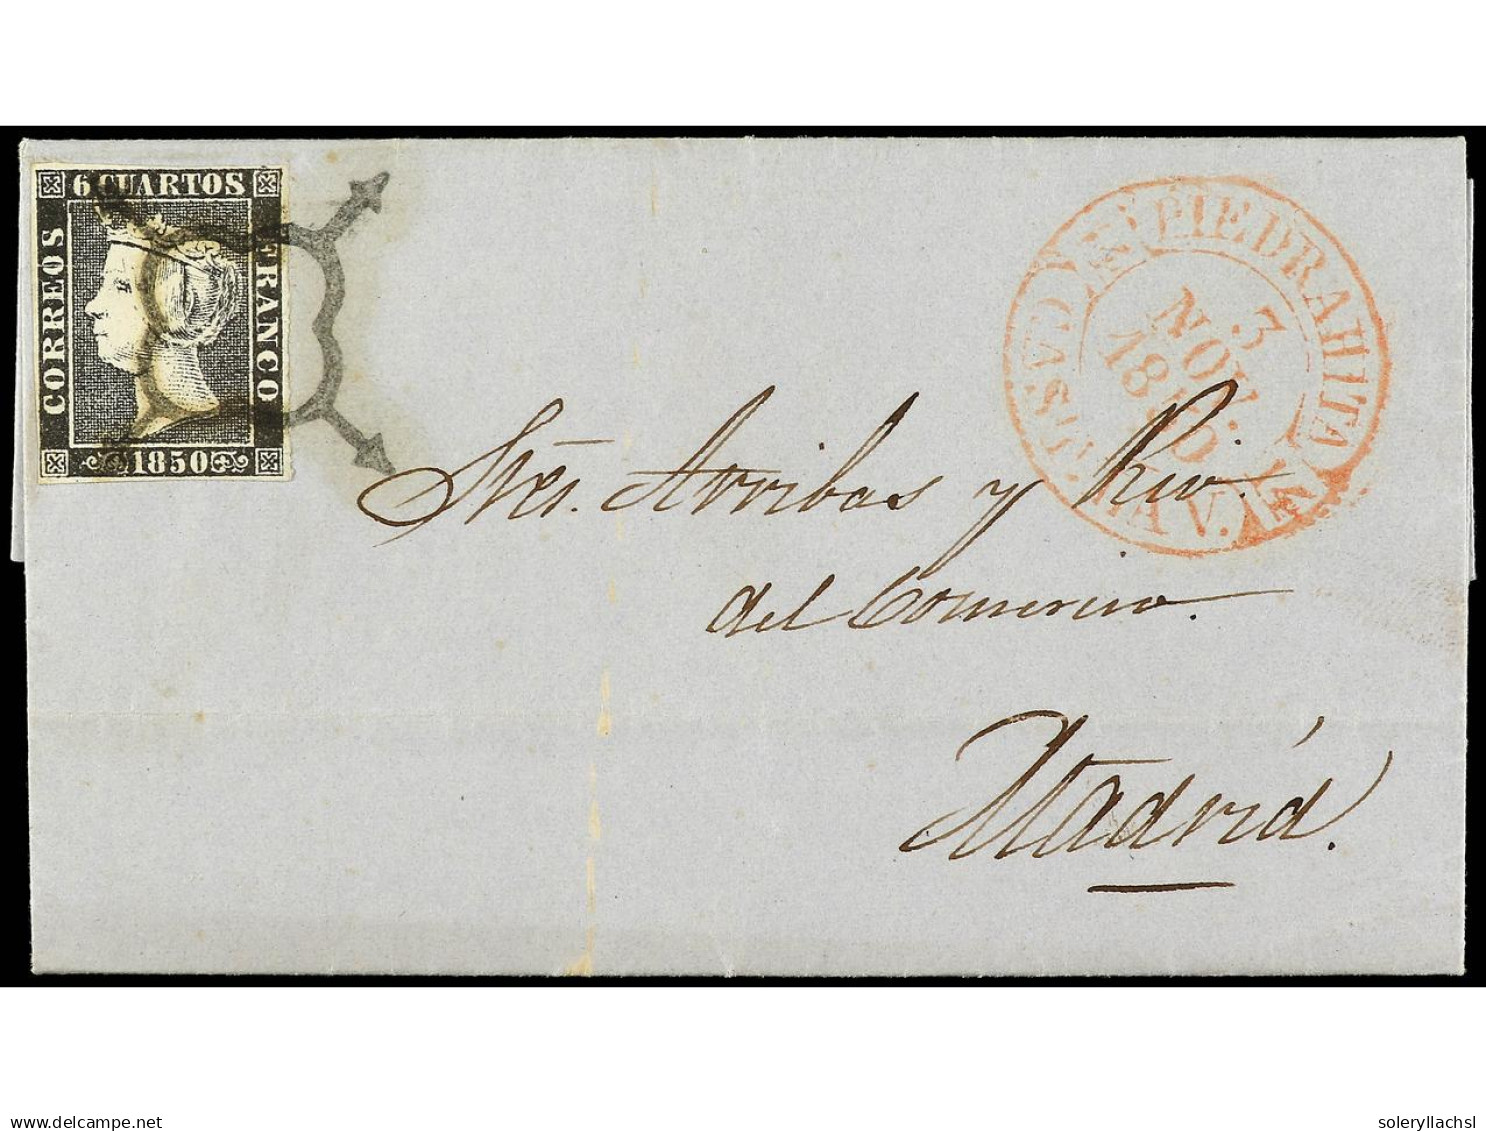 6 CUARTOS
CORREOS
FRANCO
1850
PIEDRAHITA
3
NOV.
1850
Sres. Arribas y Riv.
del Comercio
Madrid.
delcampe.net
soleryllachsl